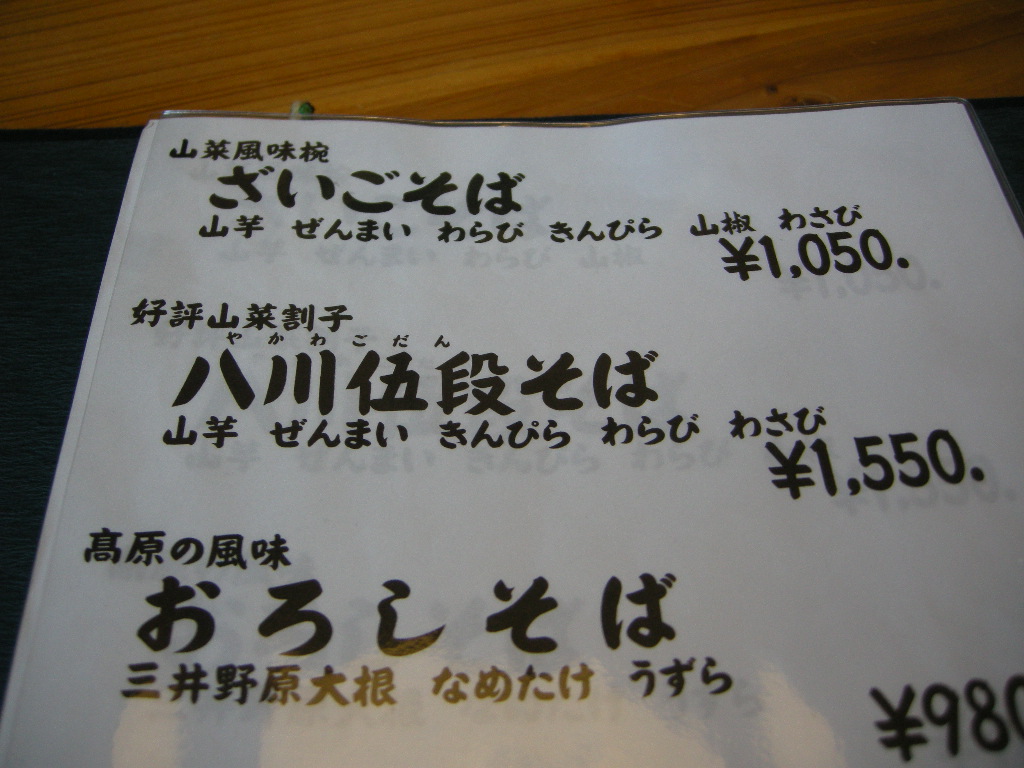 山菜風味椀
ざいごそば
山芋 ぜんまい わらび きんぴら 山椒 わさび
¥1,050.
好評山菜割子
やかわごだん
八川伍段そば
山芋 ぜんまい きんぴら わらび わさび
¥1,550.
髙原の風味
おろしそば
三井野原大根 なめたけ うずら
¥980